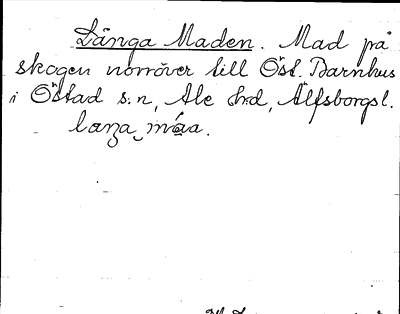 Långa Maden. Mad på
skogen norröver till Öst. Barnhus
i Östad s:n, Ale hd, Älfsborgs l.
laŋa måa.